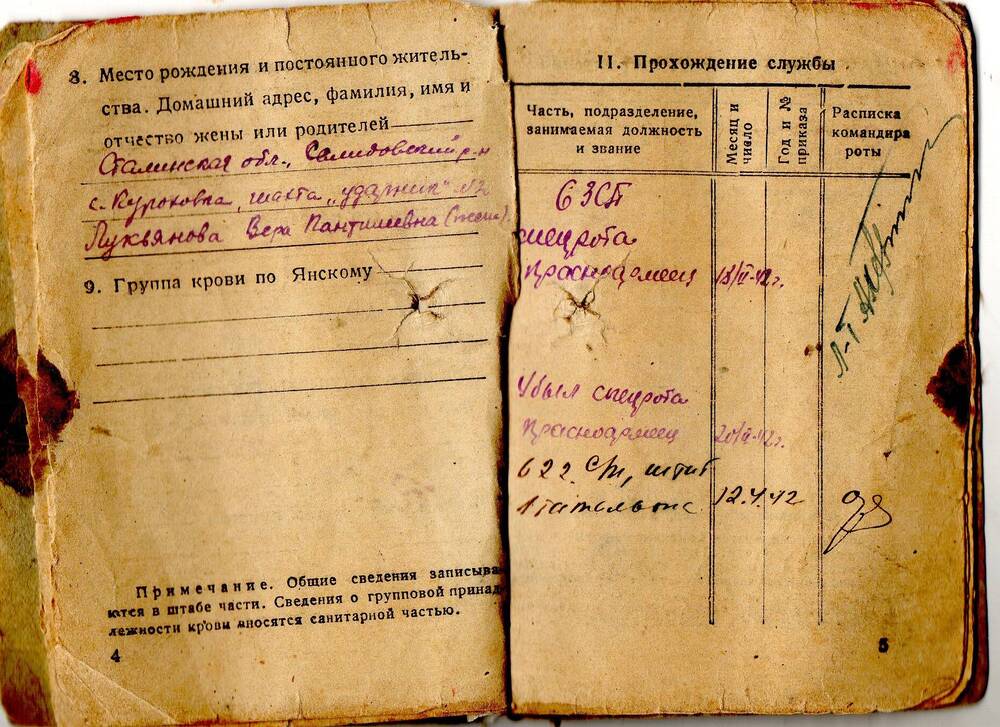 8. Место рождения и постоянного житель-
ства. Домашний адрес, фамилия, имя и
отчество жены или родителей
Сталинская обл., Селидовский р-н
с. Кураховка, шахта „ударник"
Лукьянова Вера Пантилеевна (жена).
9. Группа крови по Янскому
Примечание. Общие сведения записыва-
ются в штабе части. Сведения о групповой принад-
лежности крови вносятся санитарной частью.
4
II. Прохождение службы
Часть, подразделение,
занимаемая должность
и звание
Месяц и
число
Год и №
приказа
Расписка
командира
роты
6 ЗСП
спецрота
Красноармеец 18/II-42г.
Л-т
Убыл спецрота
Красноармеец 20/II-42г.
622 с/п, штаб
1 батальона 12.4.42
5